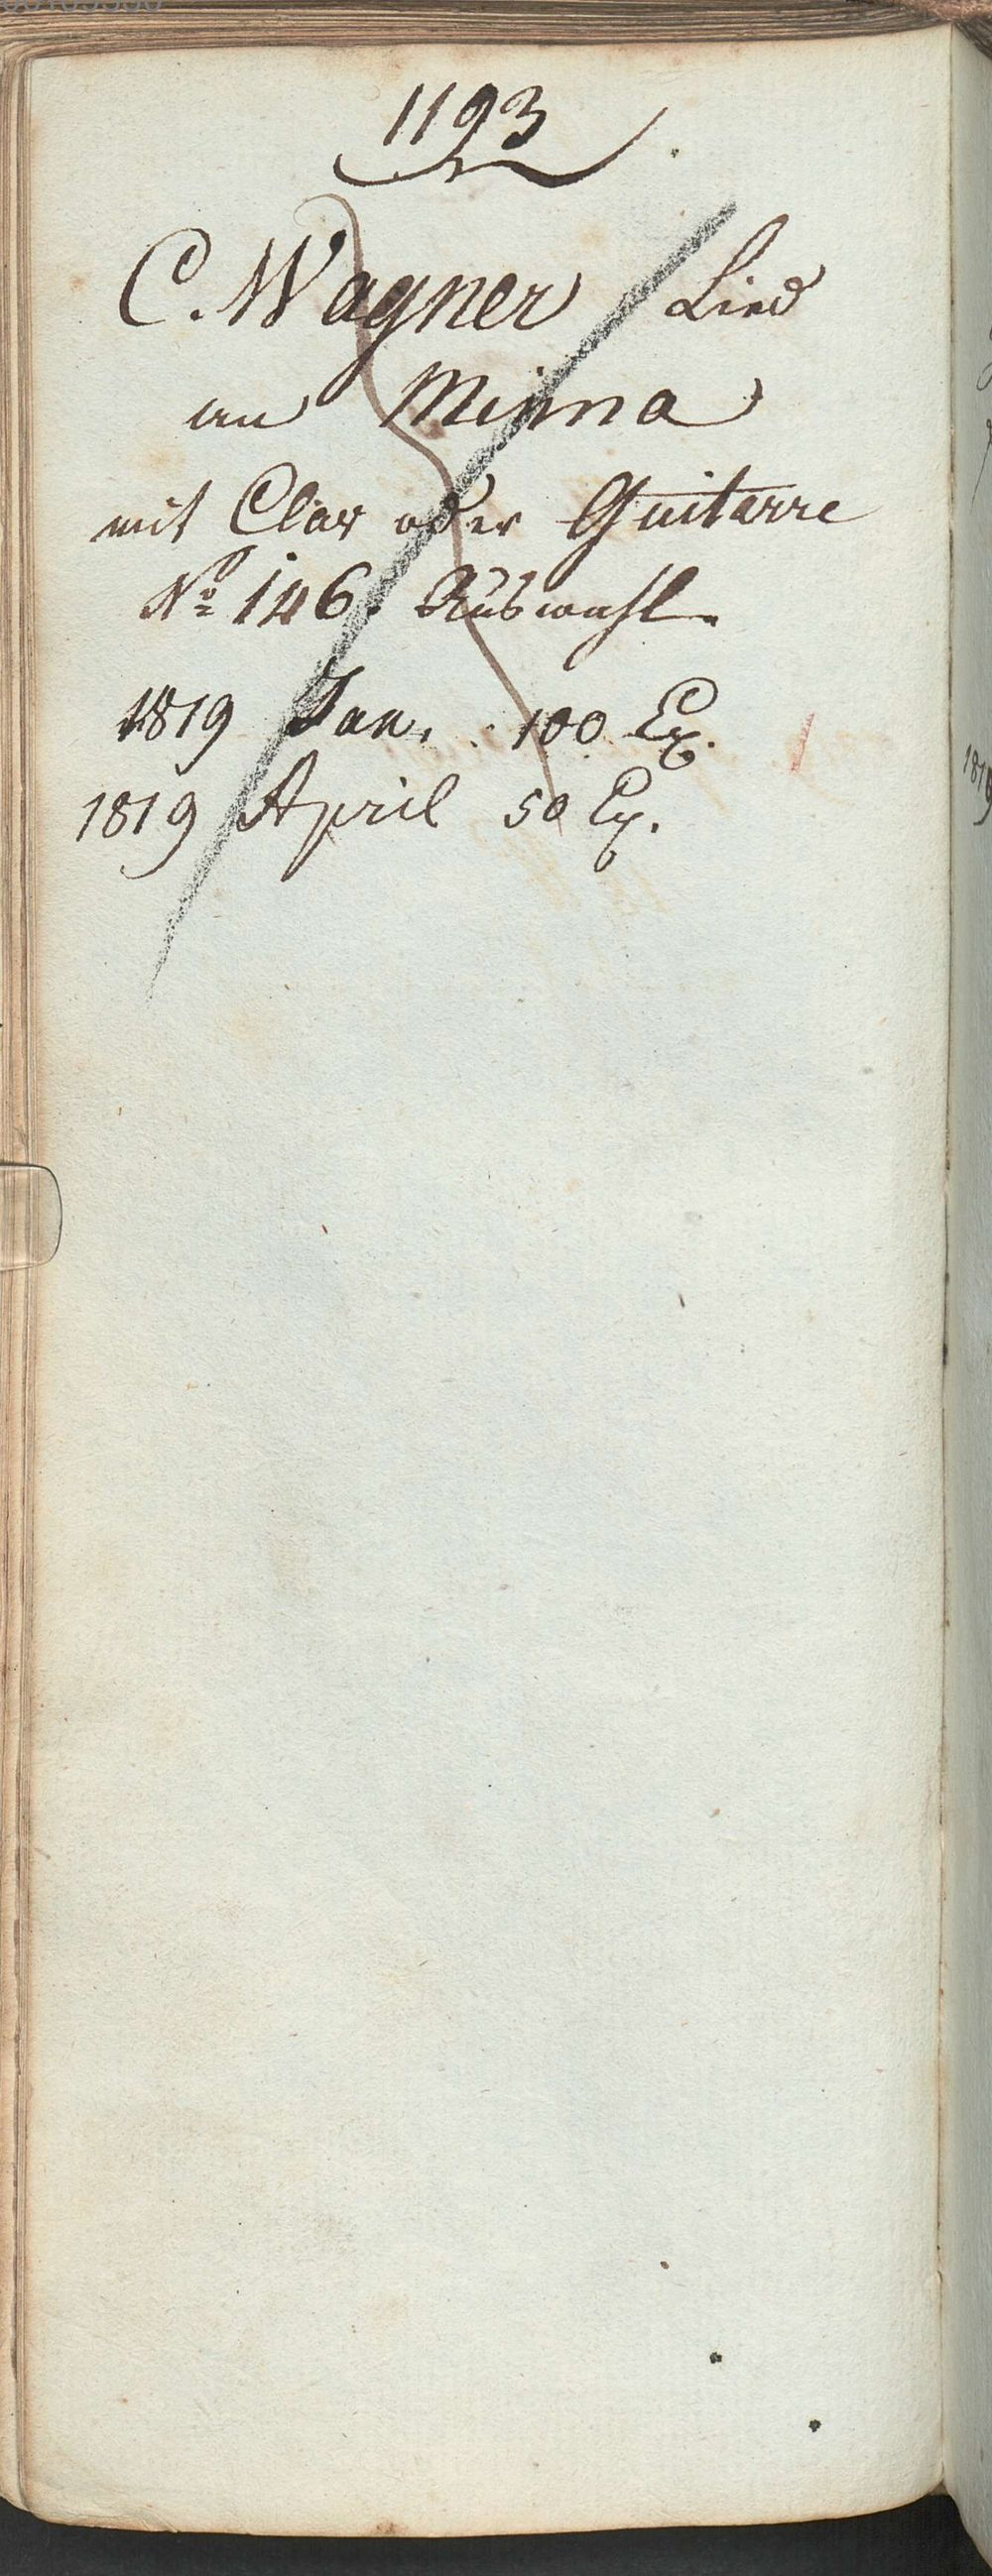 1193
C. Wagner Lied
an Minna
mit Clav oder Guitarre
No 146. Auswahl.
1819 Jan. 100 Ex.
1819 April 50 Ex.